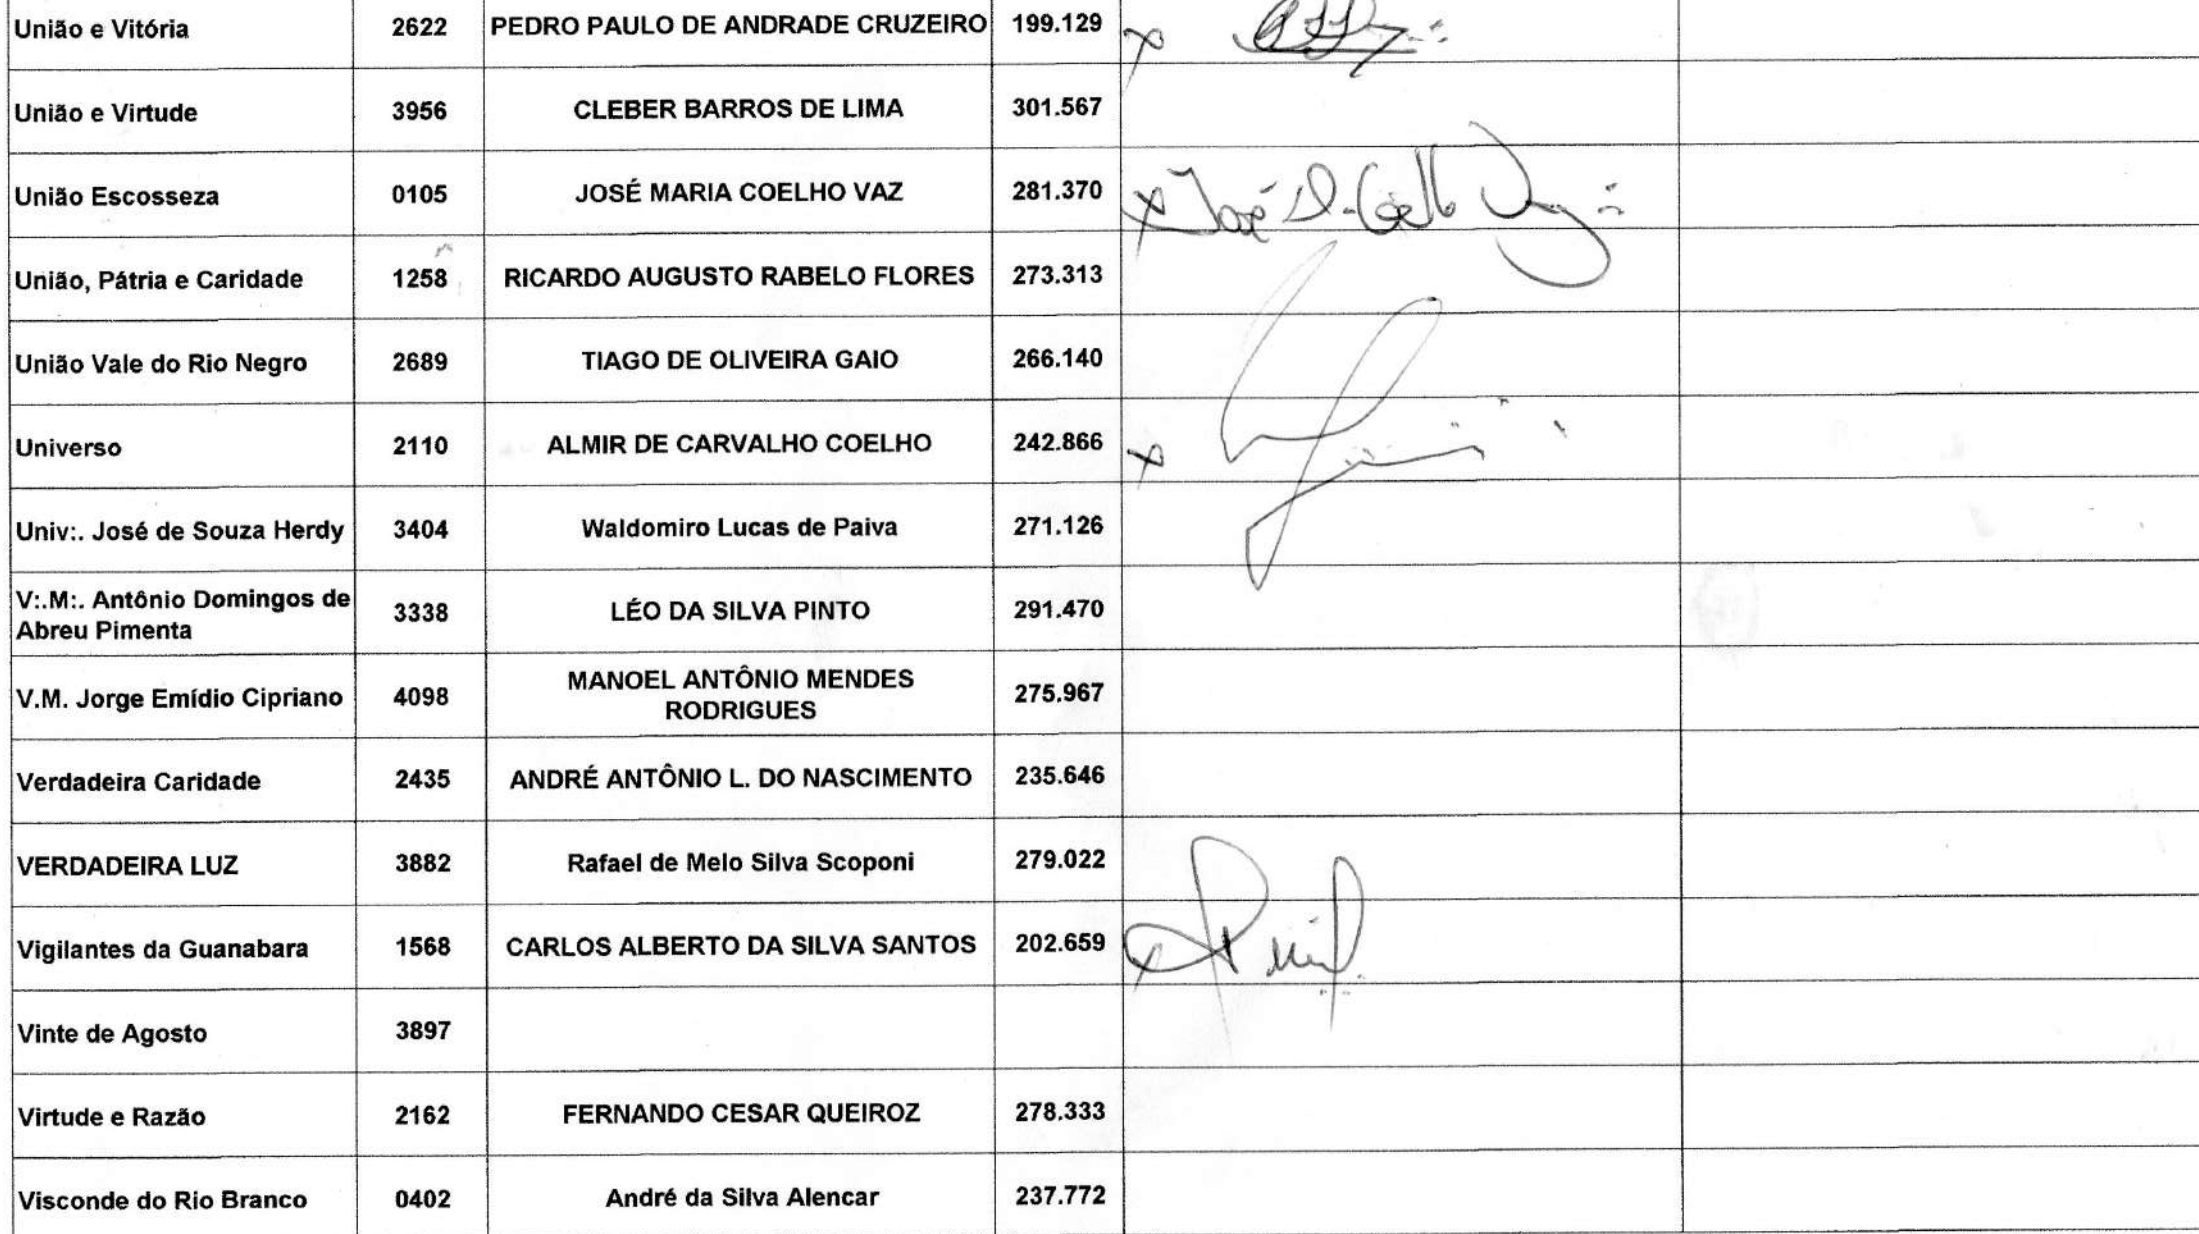 União e Vitória 2622 PEDRO PAULO DE ANDRADE CRUZEIRO 199.129 x
União e Virtude 3956 CLEBER BARROS DE LIMA 301.567
União Escosseza 0105 JOSÉ MARIA COELHO VAZ 281.370 x José
União, Pátria e Caridade 1258 RICARDO AUGUSTO RABELO FLORES 273.313
União Vale do Rio Negro 2689 TIAGO DE OLIVEIRA GAIO 266.140
Universo 2110 ALMIR DE CARVALHO COELHO 242.866 x
Univ:. José de Souza Herdy 3404 Waldomiro Lucas de Paiva 271.126
V:.M:. Antônio Domingos de
Abreu Pimenta 3338 LÉO DA SILVA PINTO 291.470
V.M. Jorge Emídio Cipriano 4098 MANOEL ANTÔNIO MENDES
RODRIGUES 275.967
Verdadeira Caridade 2435 ANDRÉ ANTÔNIO L. DO NASCIMENTO 235.646
VERDADEIRA LUZ 3882 Rafael de Melo Silva Scoponi 279.022
Vigilantes da Guanabara 1568 CARLOS ALBERTO DA SILVA SANTOS 202.659 x
Vinte de Agosto 3897
Virtude e Razão 2162 FERNANDO CESAR QUEIROZ 278.333
Visconde do Rio Branco 0402 André da Silva Alencar 237.772